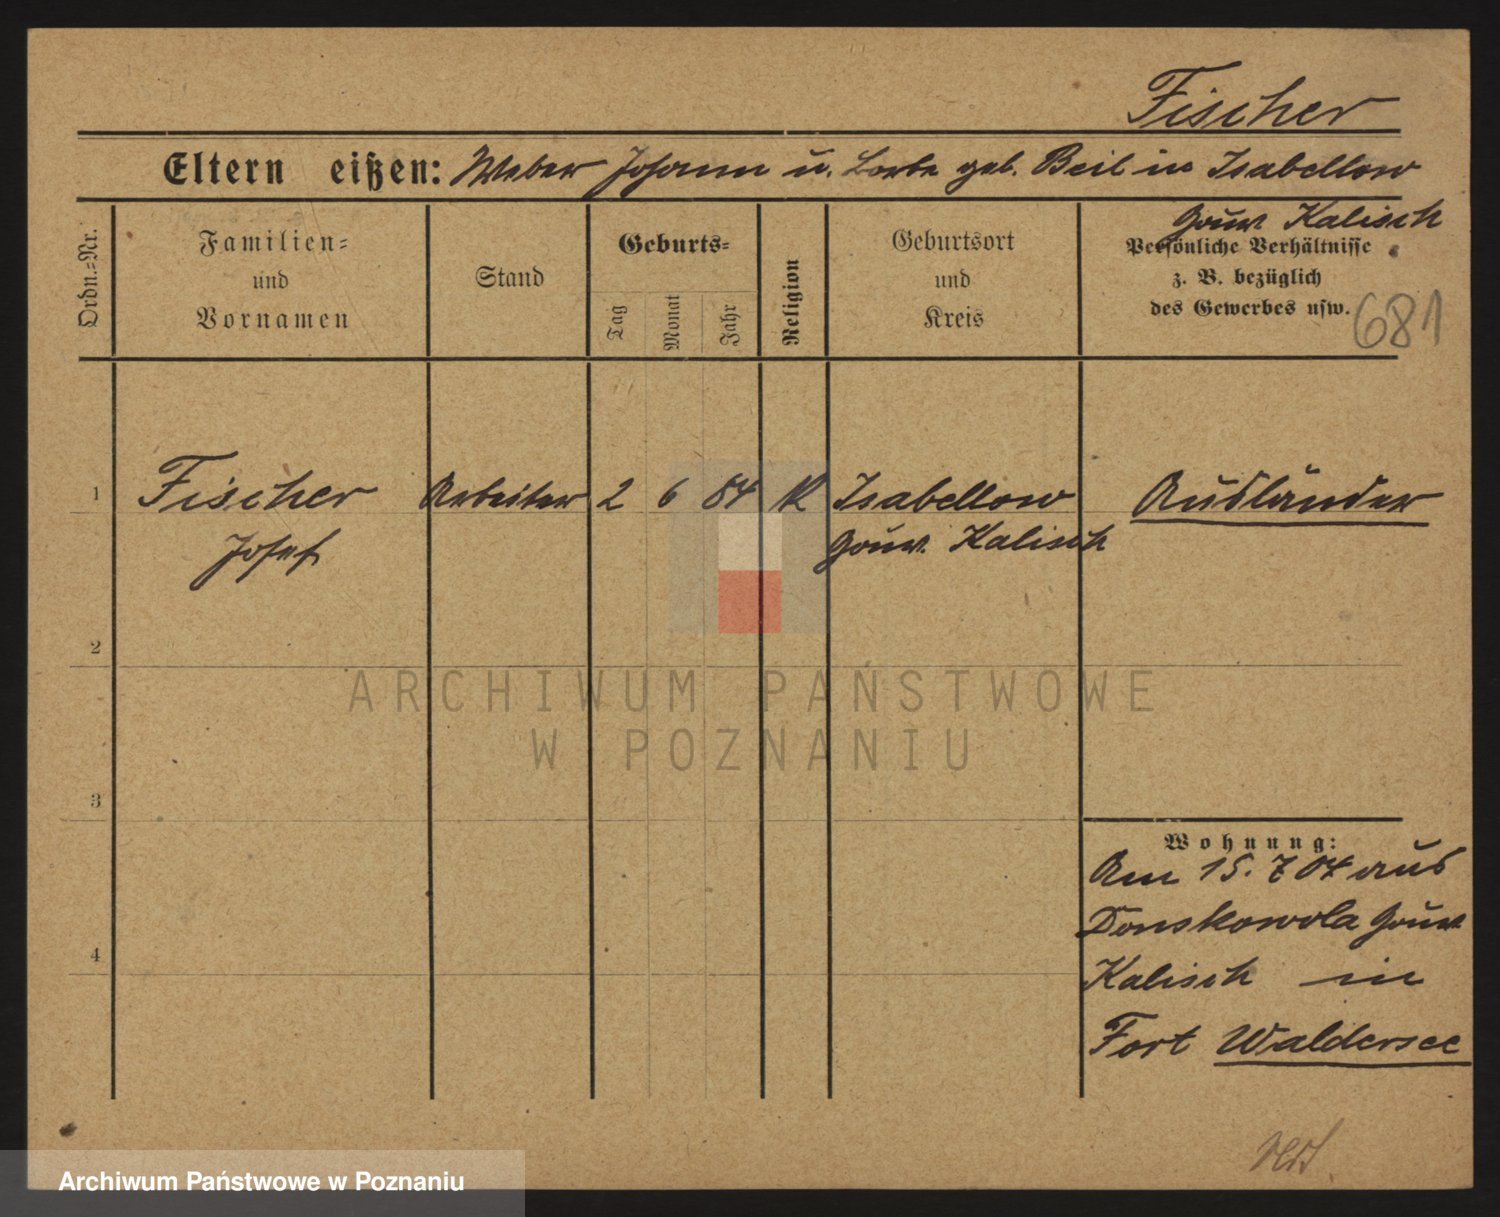 Fischer
Eltern eißen: Weber Johann u. geb. Beil in Isabellow
Gouv. Kalisch
Ordn.=Nr.
Familien=
und
Vornamen
Stand
Geburts=
Tag
Monat
Jahr
Religion
Geburtsort
und
Kreis
Persönliche Verhältnisse
z. B. bezüglich
des Gewerbes usw.
681
1 Fischer Arbeiter 2 6 84 K Isabellow Ausländer
Josef Gouv. Kalisch
2
3
4
Wohnung:
Am 15. 7 04 aus
Donskowola Gouv.
Kalisch in
Fort Waldersee
ARCHIWUM PAŃSTWOWE
W POZNANIU
Archiwum Państwowe w Poznaniu